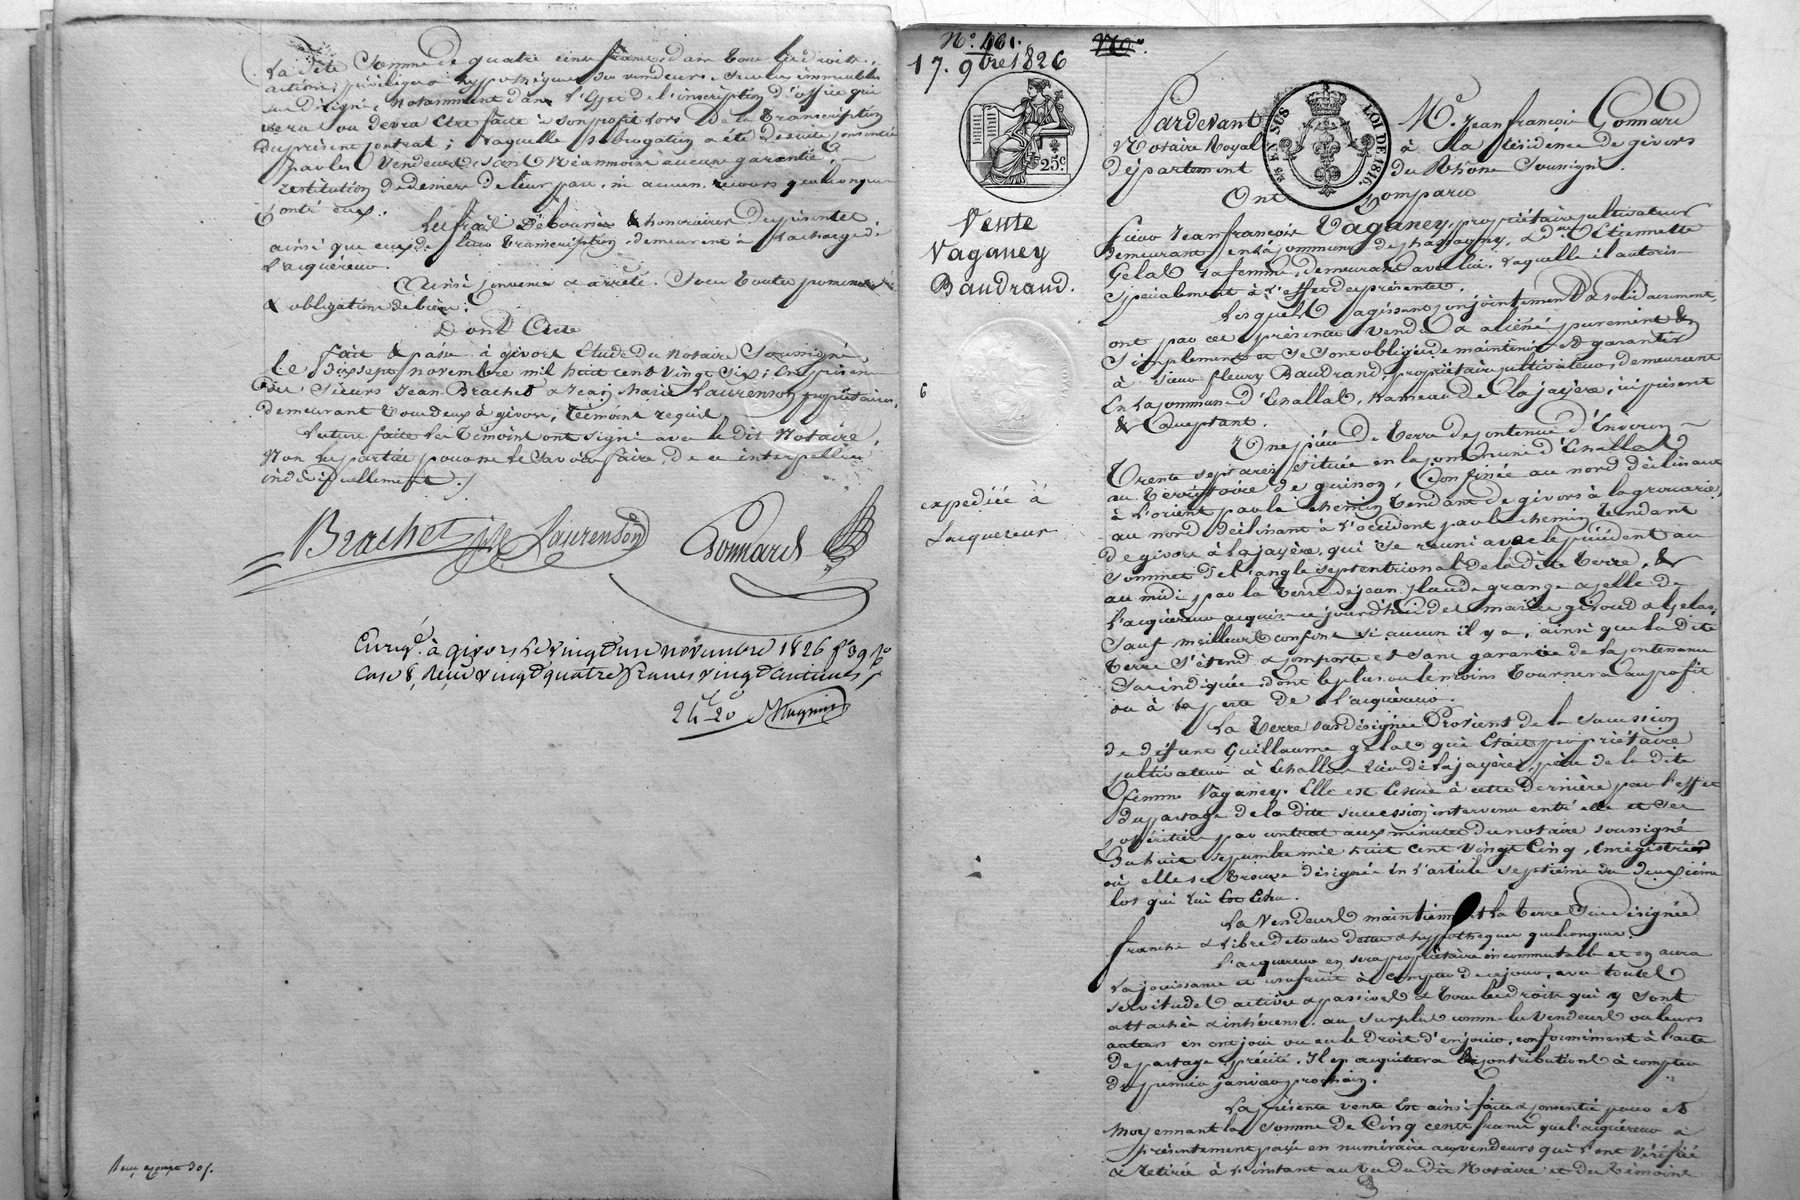 La dite Somme de quatre cent francs, dans tous les droits,
actions, privilèges & hypothèques des vendeurs sur les immeubles
sus désignés, Notamment dans l'Effet de l'inscription d'office qui
sera ou devra être faite à son profit lors de la transcription
du présent contrat; laquelle subrogation a été de suite consentie
par les Vendeurs, sans Néanmoins aucune garantie,
restitution de deniers de leur part, ni aucun recours quelconque
contr'eux.
Les frais Déboursés & honoraires des présentes
ainsi que ceux de leur transcription, demeurent à la charge de
l'acquéreur.
Ainsi convenu & arrêté. Sous toutes promesses
& obligation de biens.
Dont Acte
Fait & passé à givors Etude du Notaire Soussigné,
le Dix sept novembre mil huit cent vingt Six; En présence
des Sieurs Jean Brachet & Jean Marie Laurenson propriétaires,
demeurant tous deux à givors, témoins requis
Lecture faite les témoins ont signé avec le dit Notaire,
Non les parties pour ne le Savoir faire, de ce interpellées
individuellement./.
Brachet Laurenson Gonnard
Enreg.é à givors le vingt un novembre 1826 f.o 39 v.o
case 8, Reçu vingt quatre francs vingt centimes
24 f 20
N.o 461. N.o
17. 9bre 1826
25 c.
EN SUS LOI DE 1816.
Vente
Vaganey
Baudrand.
6
expédiée à
Lacquereur
Pardevant M.e Jean françois Gonnard
Notaire Royal à la Résidence de givors
département du Rhône Soussigné.
Ont Comparu
Sieur Jean françois Vaganey, propriétaire cultivateur
Demeurant en la commune de chassagny, & D.me Etiennette
Gelas sa femme, demeurant avec lui, laquelle il autorise
Spécialement à l'effet des présentes.
Lesquels agissant conjointement & solidairement,
ont par ces présentes vendu & aliéné purement &
Simplement et se sont obligés de maintenir et garantir
à Sieur fleury Baudrand, propriétaire cultivateur, demeurant
En la commune d'Echallas, hameau de la jayère, ici présent
& acceptant.
Une pièce de terre de contenue d'Environ
Trente sept ares, située en la commune d'Echallas
au territoire de guinon, Confinée au nord déclinant
à l'orient par le chemin tendant de givors à la
au nord déclinant à l'occident par le chemin tendant
de givors à la jayère, qui se réuni avec le précédent au
sommet de l'angle septentrional de la dite terre, &
au midi par la terre de jean claude grange & celle de
l'acquéreur acquise ce jourd'hui des mariés & Gelas,
Sauf meilleurs confins si aucun il y a, ainsi que la dite
terre s'étend & comporte et sans garantie de la contenance
Sus indiquée, dont le plus ou le moins tournera au profit
ou à la perte de l'acquéreur.
La terre sus désignée Provient de la Succession
de défunt Guillaume gelas qui Etait propriétaire
cultivateur à Echallas lieu de la jayère, père de la dite
femme Vaganey. Elle est Echue à cette Dernière par l'effet
du partage de la dite succession intervenu entr'elle et ses
cohéritiers par contrat aux minutes du notaire soussigné
Du huit septembre mil huit cent vingt Cinq, Enregistré
où elle se trouve désignée en l'article septième du deuxième
lot qui lui Est Echu.
Les Vendeurs maintiennent la terre Sus désignée
franche & libre de toutes dettes & hypothèques quelconques.
L'acquéreur en sera propriétaire incommutable et en aura
La jouissance et usufruit à compter de ce jour, avec toutes
servitudes actives & passives & tous les droits qui y sont
attachés & inhérens. au surplus comme les vendeurs ou leurs
auteurs en ont joui ou eu le Droit d'en jouir, conformément à l'acte
De partage précité. Il en acquittera les contributions à compter
du premier janvier prochain.
La présente vente Est ainsi faite & consentie pour et
Moyennant la somme de Cinq cents francs que l'acquéreur a
présentement payé en numéraire aux vendeurs qui l'ont vérifiée
& Retirée à l'instant au Vu du dit Notaire et des témoins